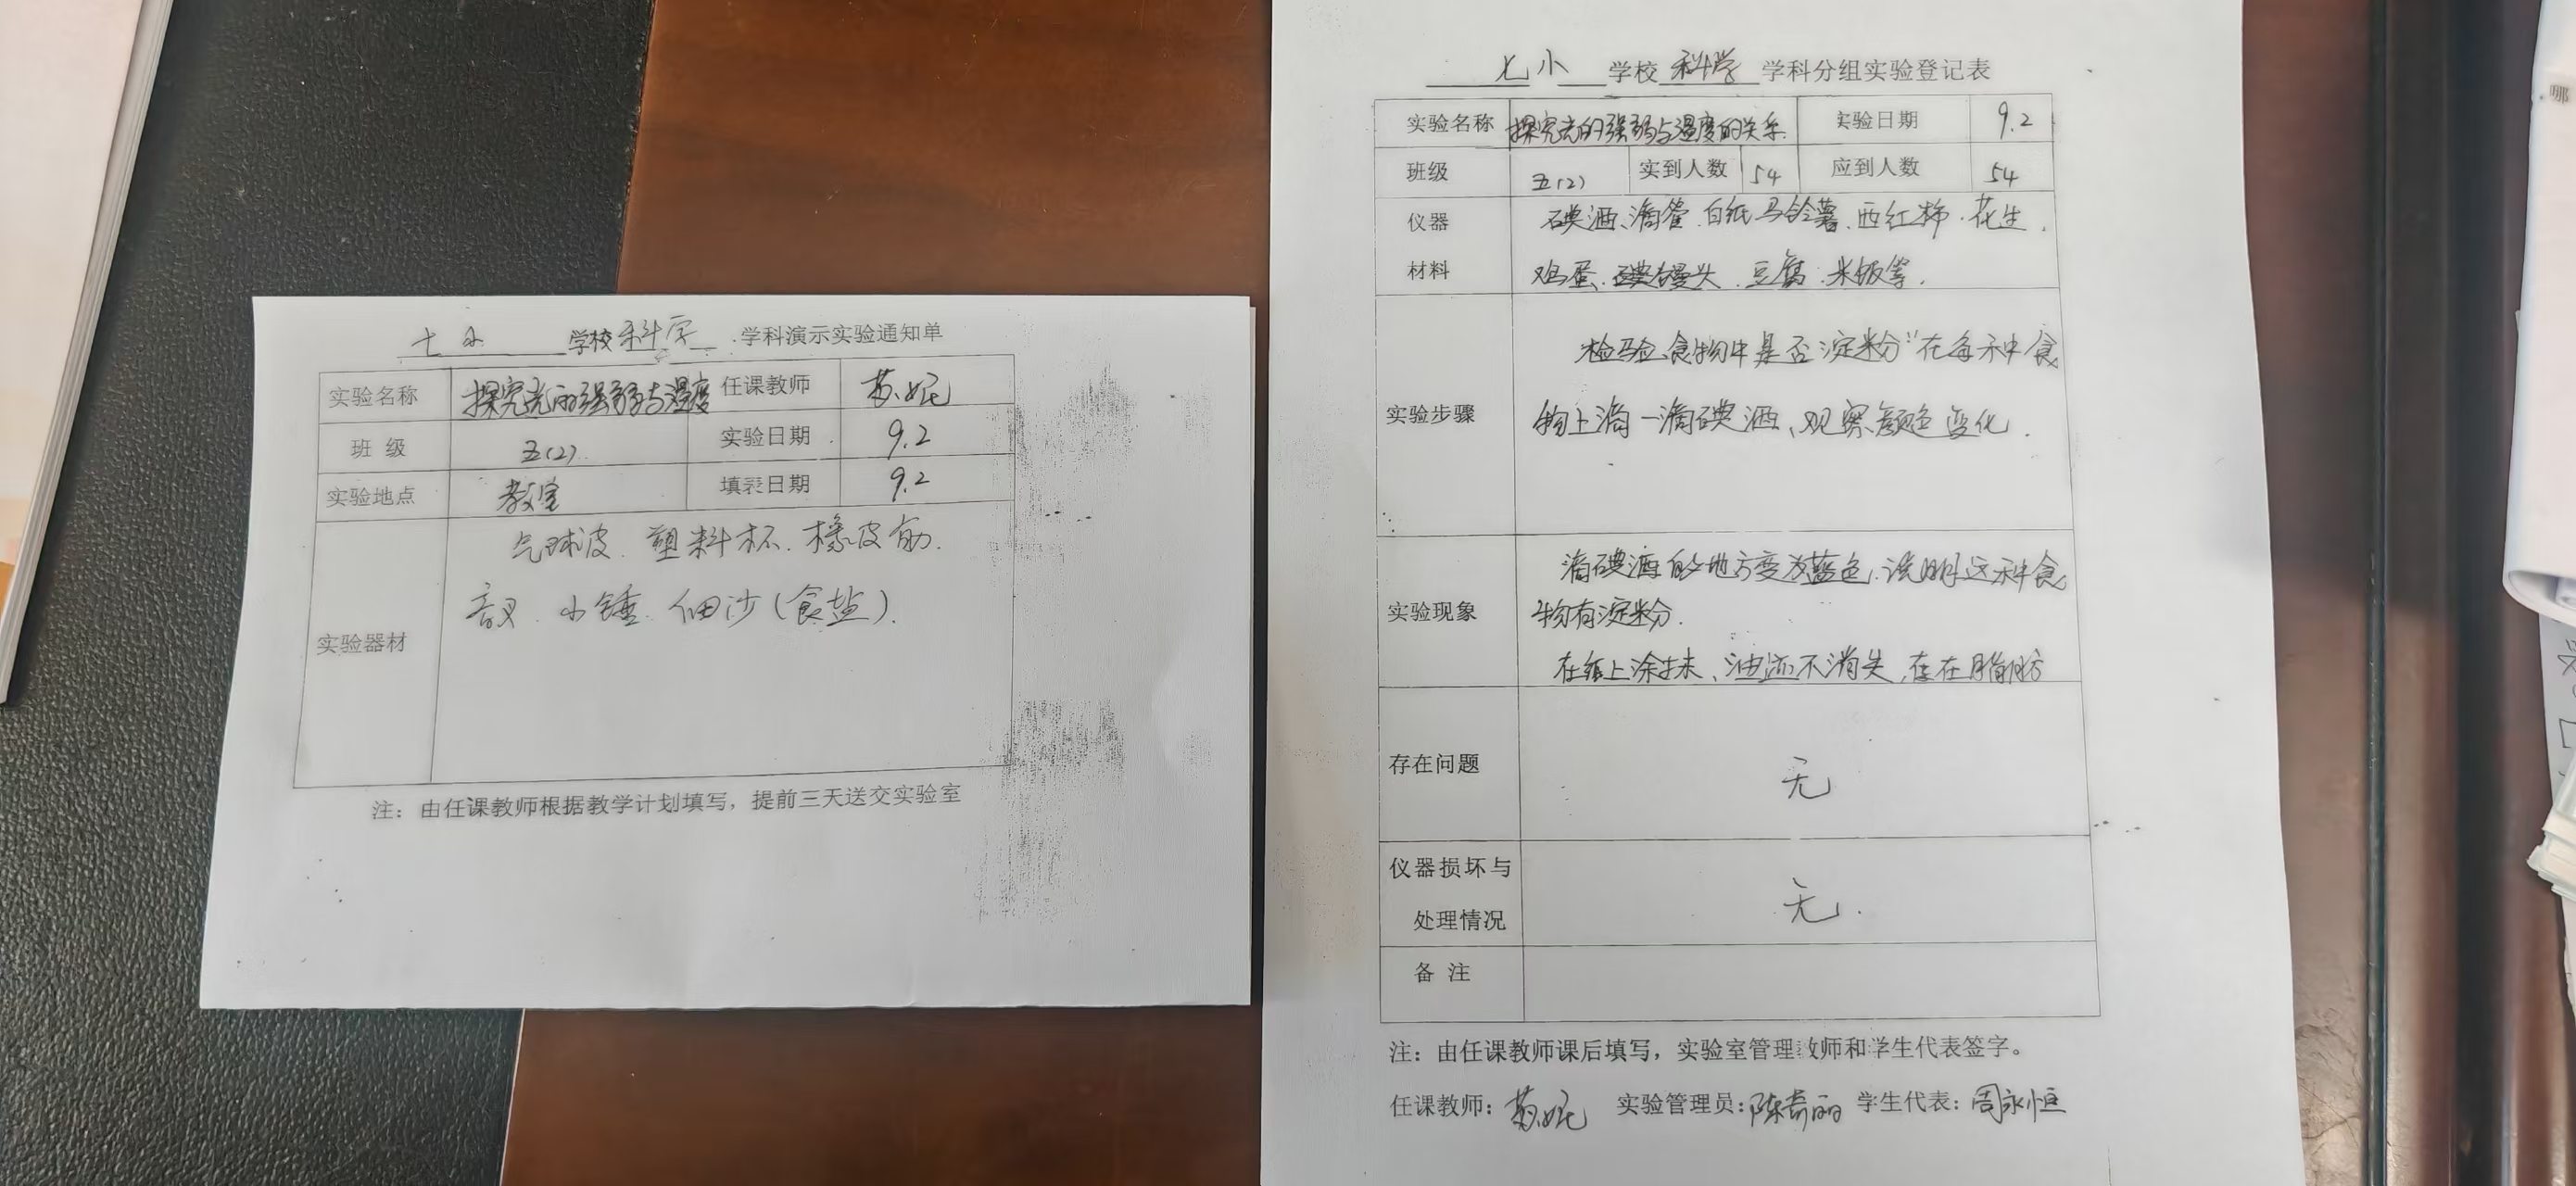 七小 学校 科学 学科演示实验通知单
实验名称 探究光的强弱与温度 任课教师
班 级 五(2) 实验日期 9.2
实验地点 教室 填表日期 9.2
实验器材
气球皮、塑料杯、橡皮筋、
音叉、小锤、细沙(食盐)、
注：由任课教师根据教学计划填写，提前三天送交实验室
七小 学校 科学 学科分组实验登记表
实验名称 探究光的强弱与温度的关系 实验日期 9.2
班级 五(2) 实到人数 54 应到人数 54
仪器 碘酒、滴管、白纸、马铃薯、西红柿、花生、
材料 鸡蛋、馒头、豆腐、米饭等、
实验步骤
检验食物中是否淀粉"在每种食
物上滴一滴碘酒、观察颜色变化.
实验现象
滴碘酒的地方变为蓝色、说明这种食
物有淀粉.
在纸上涂抹、油迹不消失、存在脂肪
存在问题 无
仪器损坏与
处理情况 无.
备 注
注：由任课教师课后填写，实验室管理教师和学生代表签字。
任课教师: 实验管理员: 陈奇丽 学生代表: 周永恒
哪